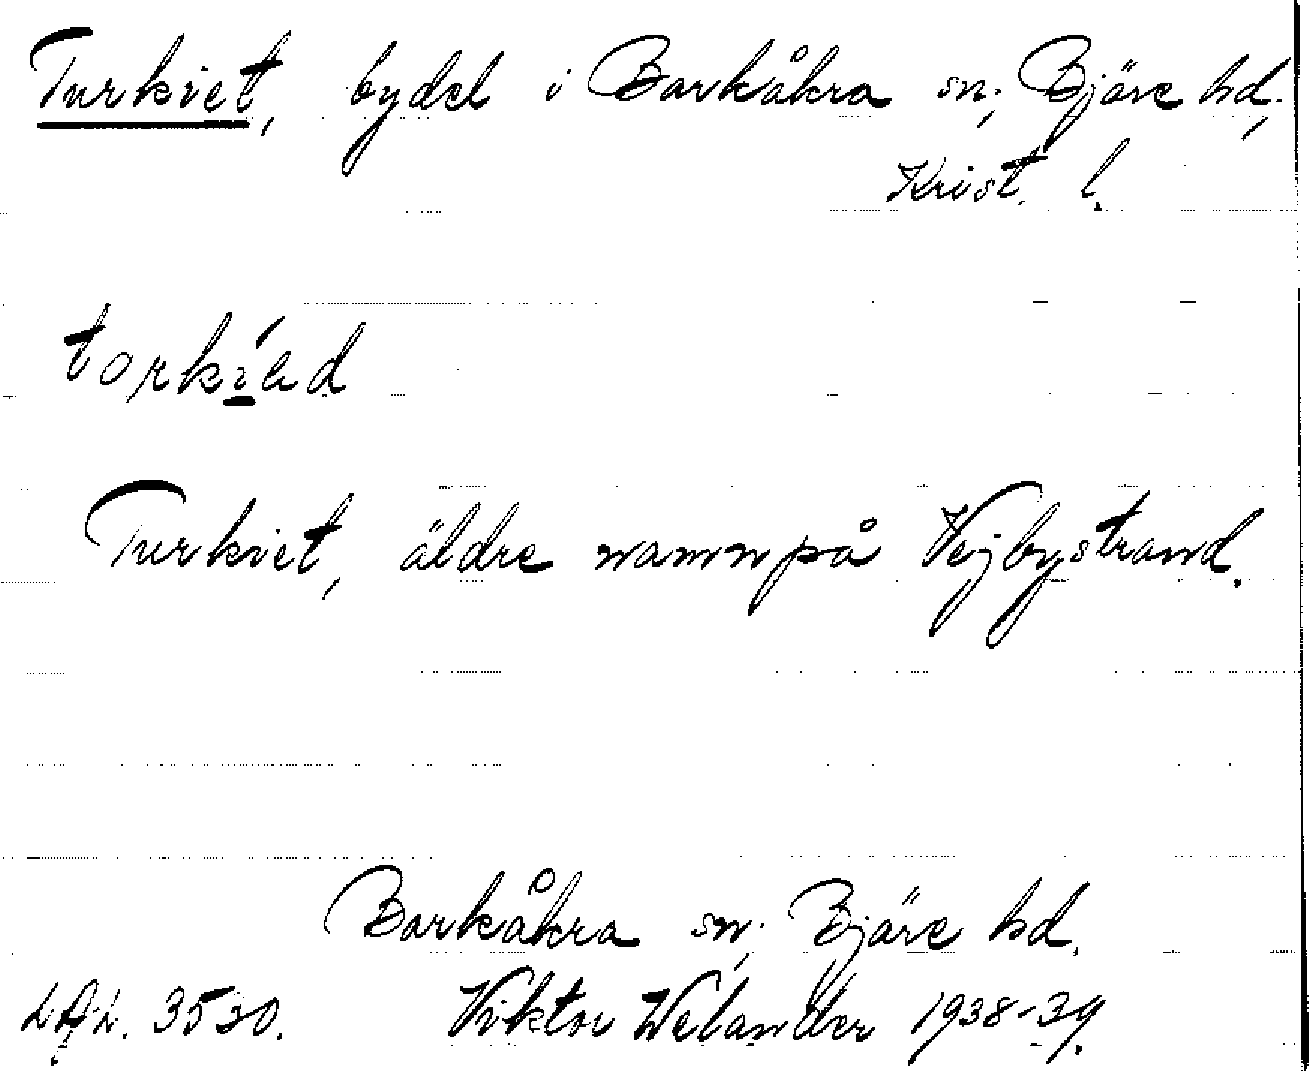 Turkviet, bydel i Barkåkra sn, Bjäre hd,
Krist. l.
Turkviet, äldre namn på Vejbystrand.
Barkåkra sn, Bjäre hd.
LAL. 3530. Viktor Welander 1938-39.